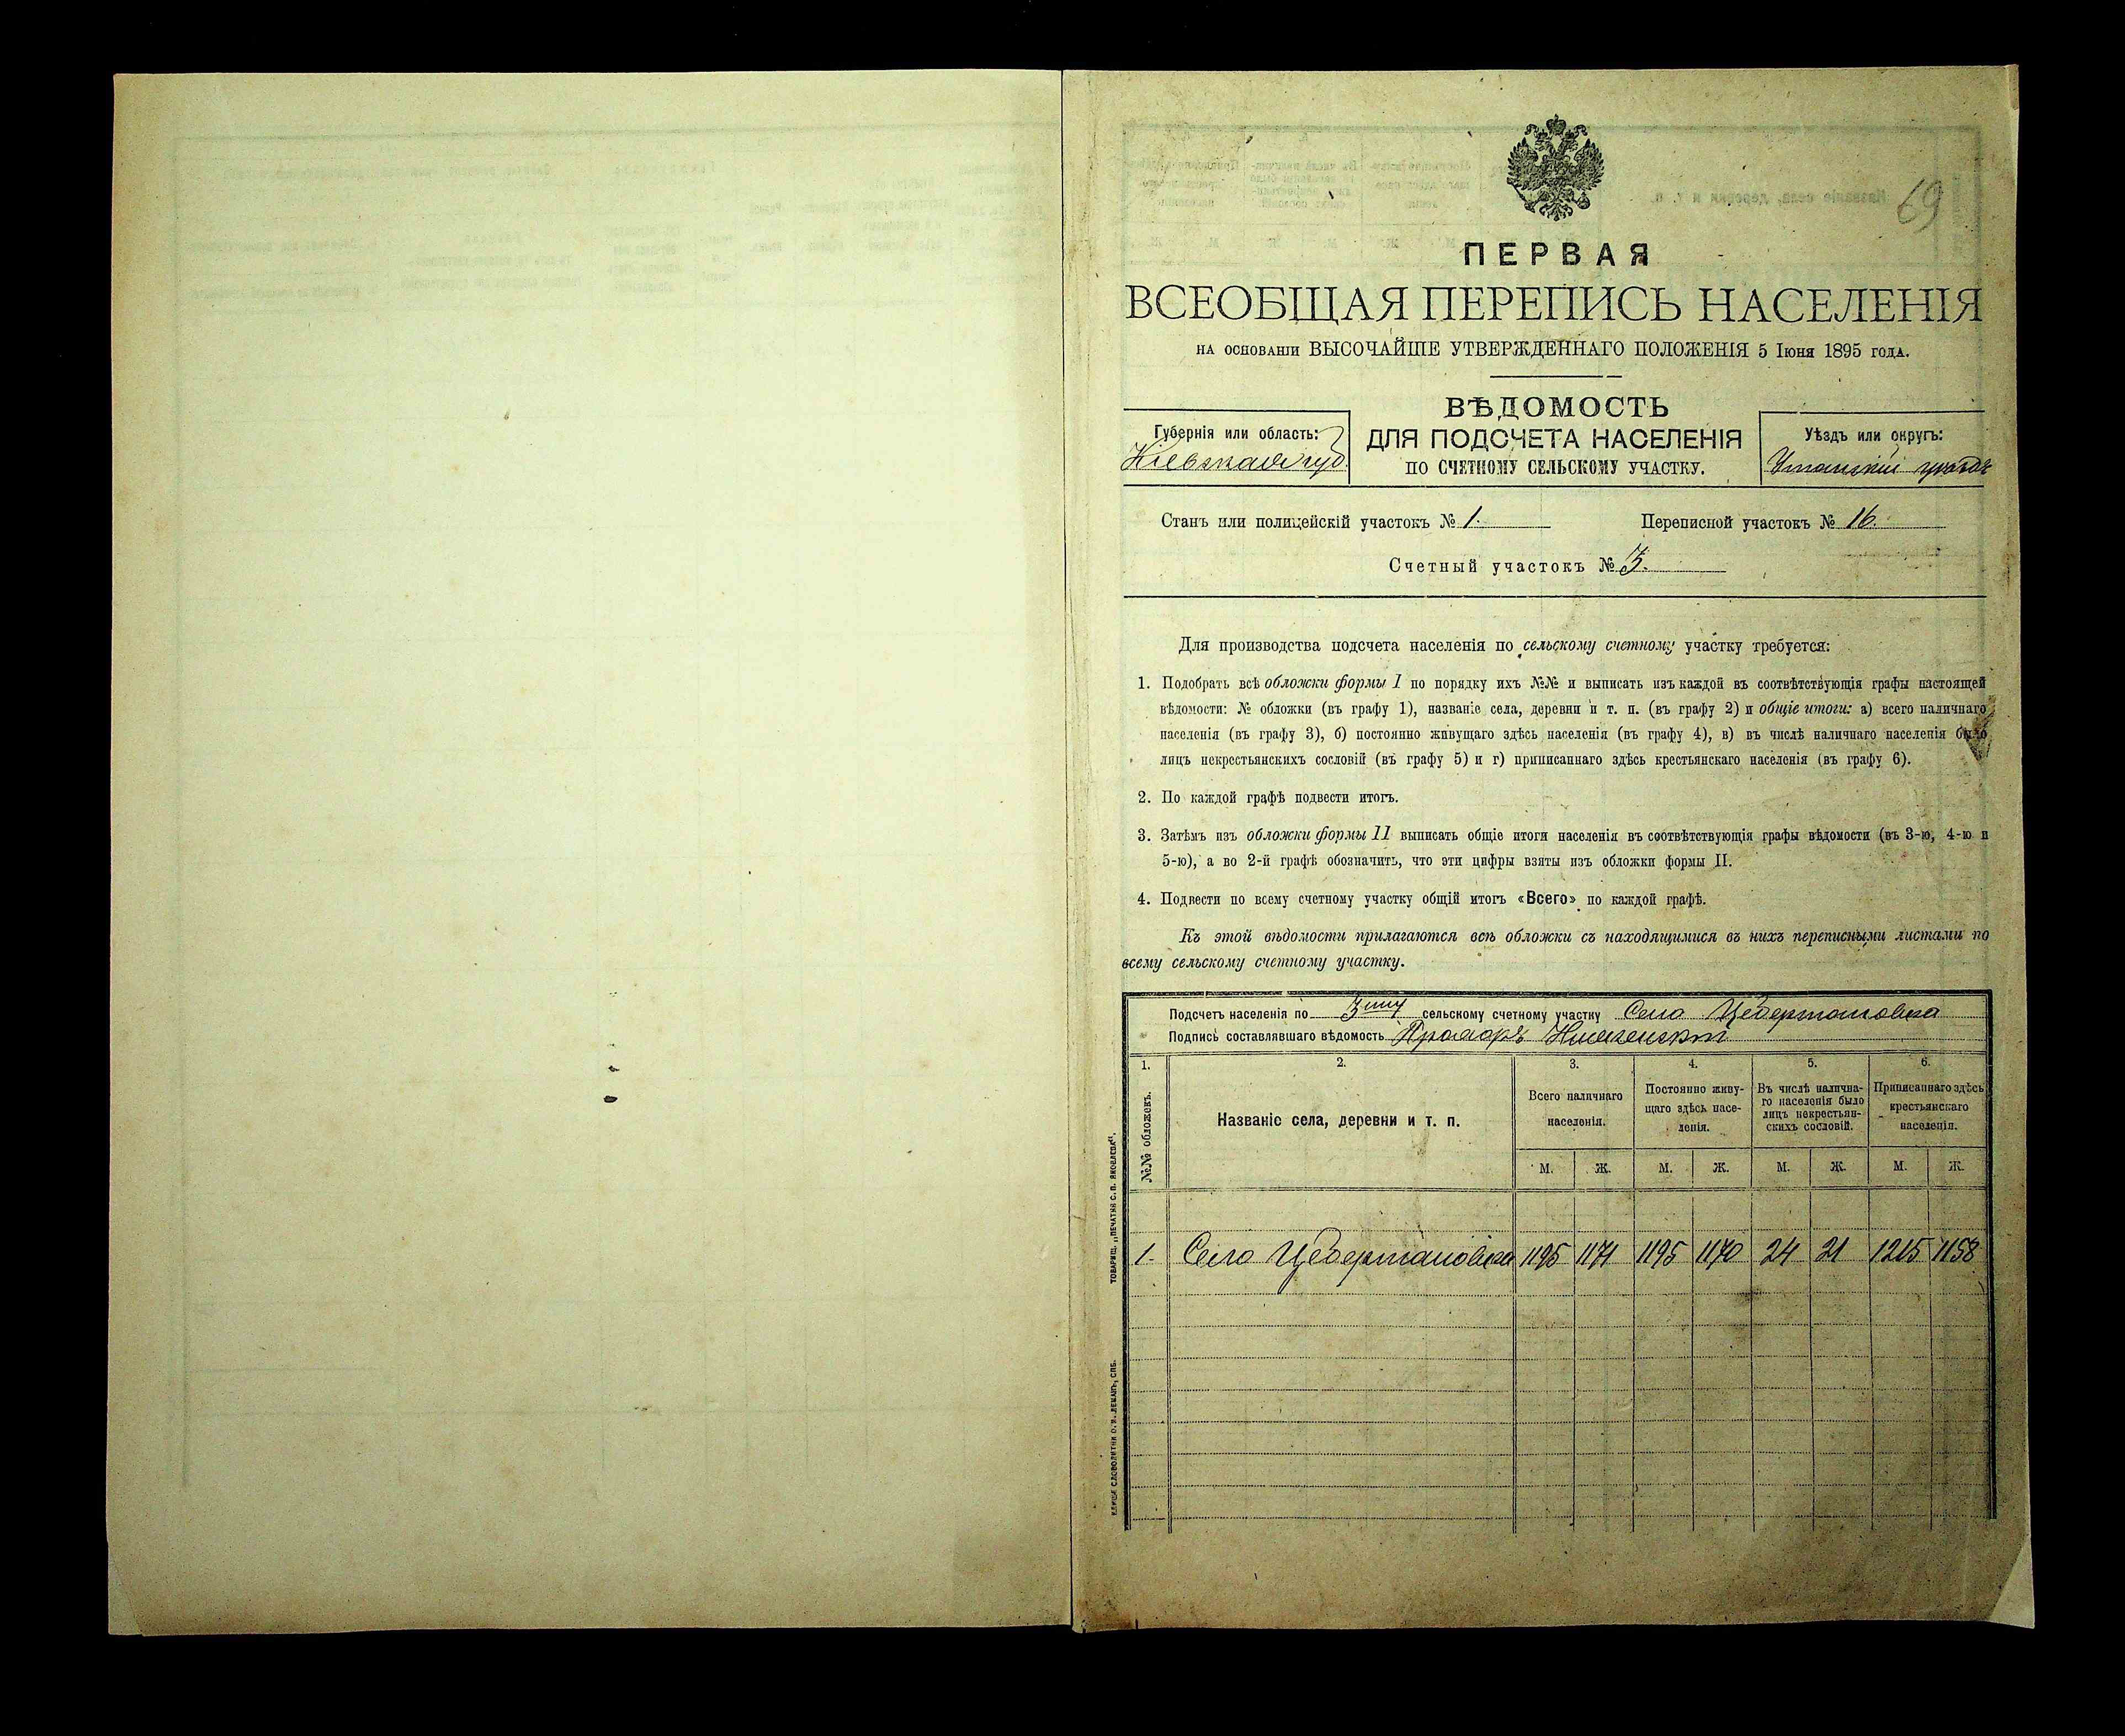 69
ПЕРВАЯ
ВСЕОБЩАЯ ПЕРЕПИСЬ НАСЕЛЕНІЯ
НА ОСНОВАНІИ ВЫСОЧАЙШЕ УТВЕРЖДЕННАГО ПОЛОЖЕНІЯ 5 Іюня 1895 ГОДА.
Губернія или область:
Кіевская губ.
ВѢДОМОСТЬ
ДЛЯ ПОДСЧЕТА НАСЕЛЕНІЯ
ПО СЧЕТНОМУ СЕЛЬСКОМУ УЧАСТКУ.
Уѣздъ или округъ:
Уманскій уѣздъ
Станъ или полицейскій участокъ № 1. Переписной участокъ № 16.
Счетный участокъ № 3.
Для производства подсчета населенія по сельскому счетному участку требуется:
1. Подобрать всѣ обложки формы I по порядку ихъ №№ и выписать изъ каждой въ соотвѣтствующія графы настоящей
вѣдомости: № обложки (въ графу 1), названіе села, деревни и т. п. (въ графу 2) и общіе итоги: а) всего наличнаго
населенія (въ графу 3), б) постоянно живущаго здѣсь населенія (въ графу 4), в) въ числѣ наличнаго населенія было
лицъ некрестьянскихъ сословій (въ графу 5) и г) приписаннаго здѣсь крестьянскаго населенія (въ графу 6).
2. По каждой графѣ подвести итогъ.
3. Затѣмъ изъ обложки формы II выписать общіе итоги населенія въ соотвѣтствующія графы вѣдомости (въ 3-ю, 4-ю и
5-ю), а во 2-й графѣ обозначить, что эти цифры взяты изъ обложки формы II.
4. Подвести по всему счетному участку общій итогъ «Всего» по каждой графѣ.
Къ этой вѣдомости прилагаются всѣ обложки съ находящимися въ нихъ переписными листами по
всему сельскому счетному участку.
Подсчетъ населенія по 3му сельскому счетному участку Село Цебермановка
Подпись составлявшаго вѣдомость
1. 2. 3. 4. 5. 6.
№№ обложекъ.
Названіе села, деревни и т. п.
Всего наличнаго
населенія.
Постоянно живу-
щаго здѣсь насе-
ленія.
Въ числѣ налична-
го населенія было
лицъ некрестьян-
скихъ сословій.
Приписаннаго здѣсь
крестьянскаго
населенія.
М. Ж. М. Ж. М. Ж. М. Ж.
1. Село Цебермановка 1195 1171 1195 1170 24 21 1215 1158
ТОВАРИЩ. „ПЕЧАТНЯ С. П. ЯКОВЛЕВА“.
СЛОВОЛИТНИ О. И. ЛЕМАНЪ, СПБ.